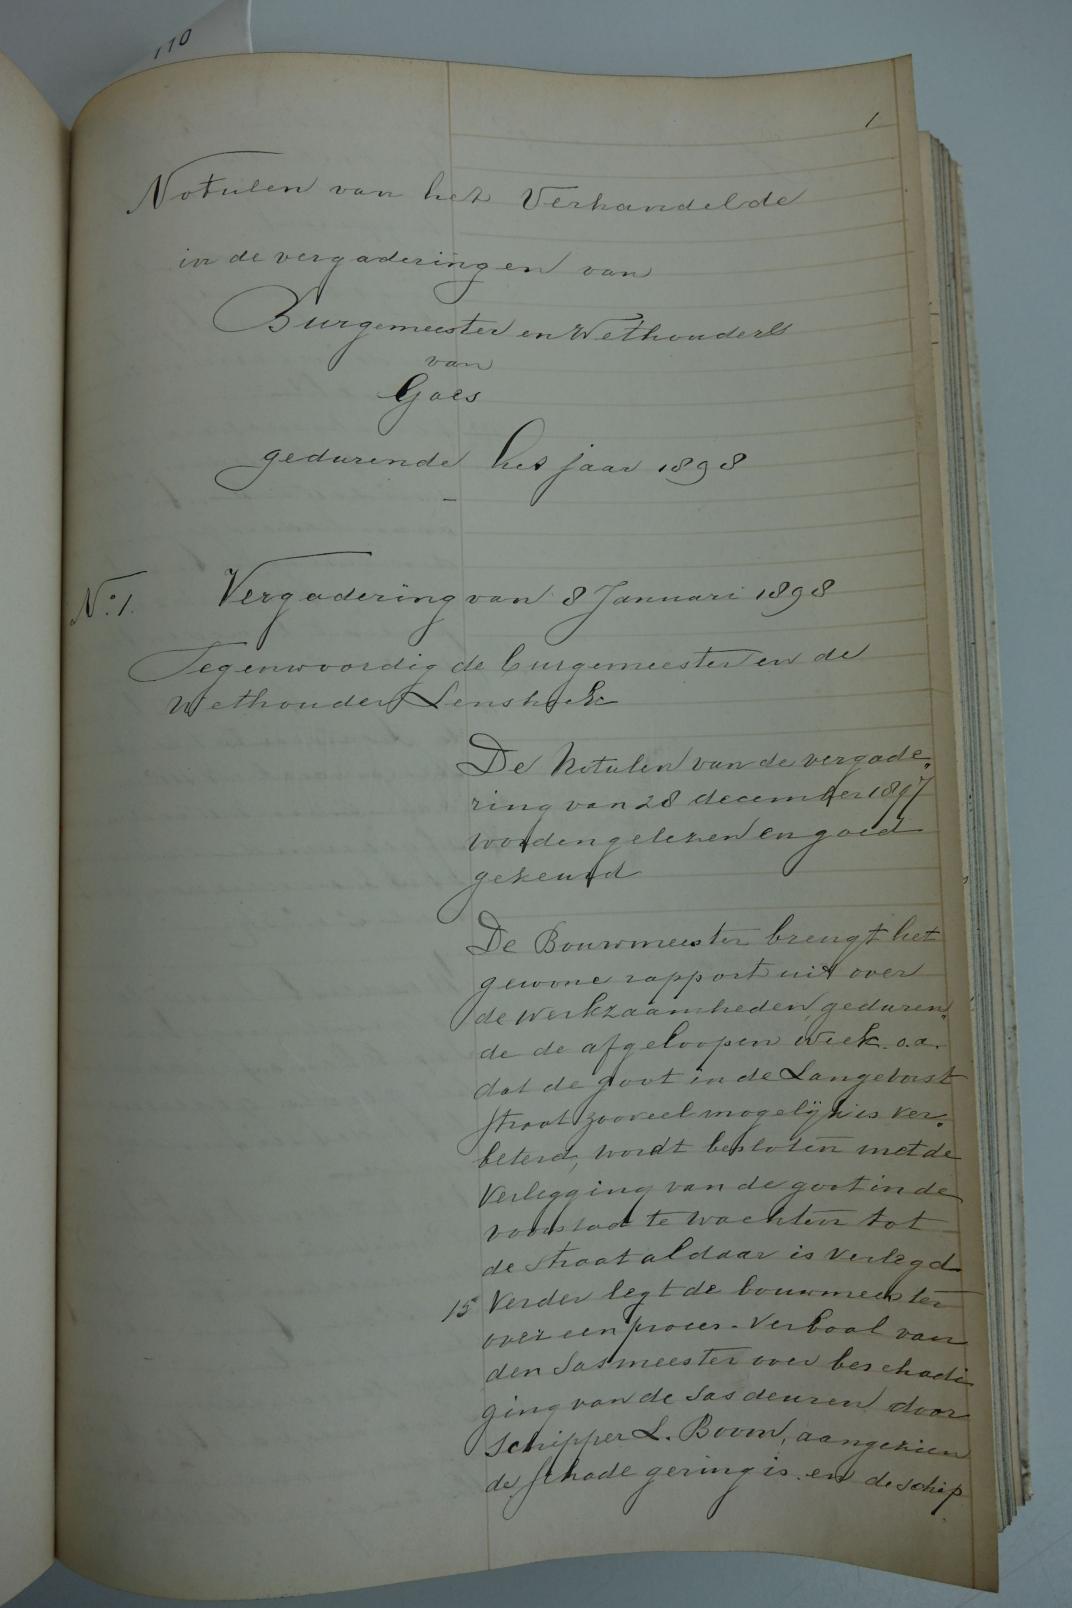 110
1
Notulen van het Verhandelde
in de vergaderingen van
Burgemeester en Wethouders
van
Goes
gedurende het jaar 1898
No. 1. Vergadering van 8 Januari 1898
Tegenwoordig de burgemeester en de
Wethouder Lenshoek
De Notulen van de vergade„
ring van 28 december 1897
worden gelezen en goed
gekeurd
De Bouwmeester brengt het
gewone rapport uit over
de werkzaamheden geduren„
de de afgeloopen week o.a.
dat de goot in de Langevorst
straat zooveel mogelijk is ver„
beterd, wordt besloten met de
Verlegging van de goot in de
voorstad te wachten tot
de straat aldaar is verlegd
15 Verder legt de bouwmeester
over een proces-Verbaal van
den Sasmeester over beschadi
ging van de Sas deuren door
Schipper L. Boom, aangezien
de schade gering is en de schip